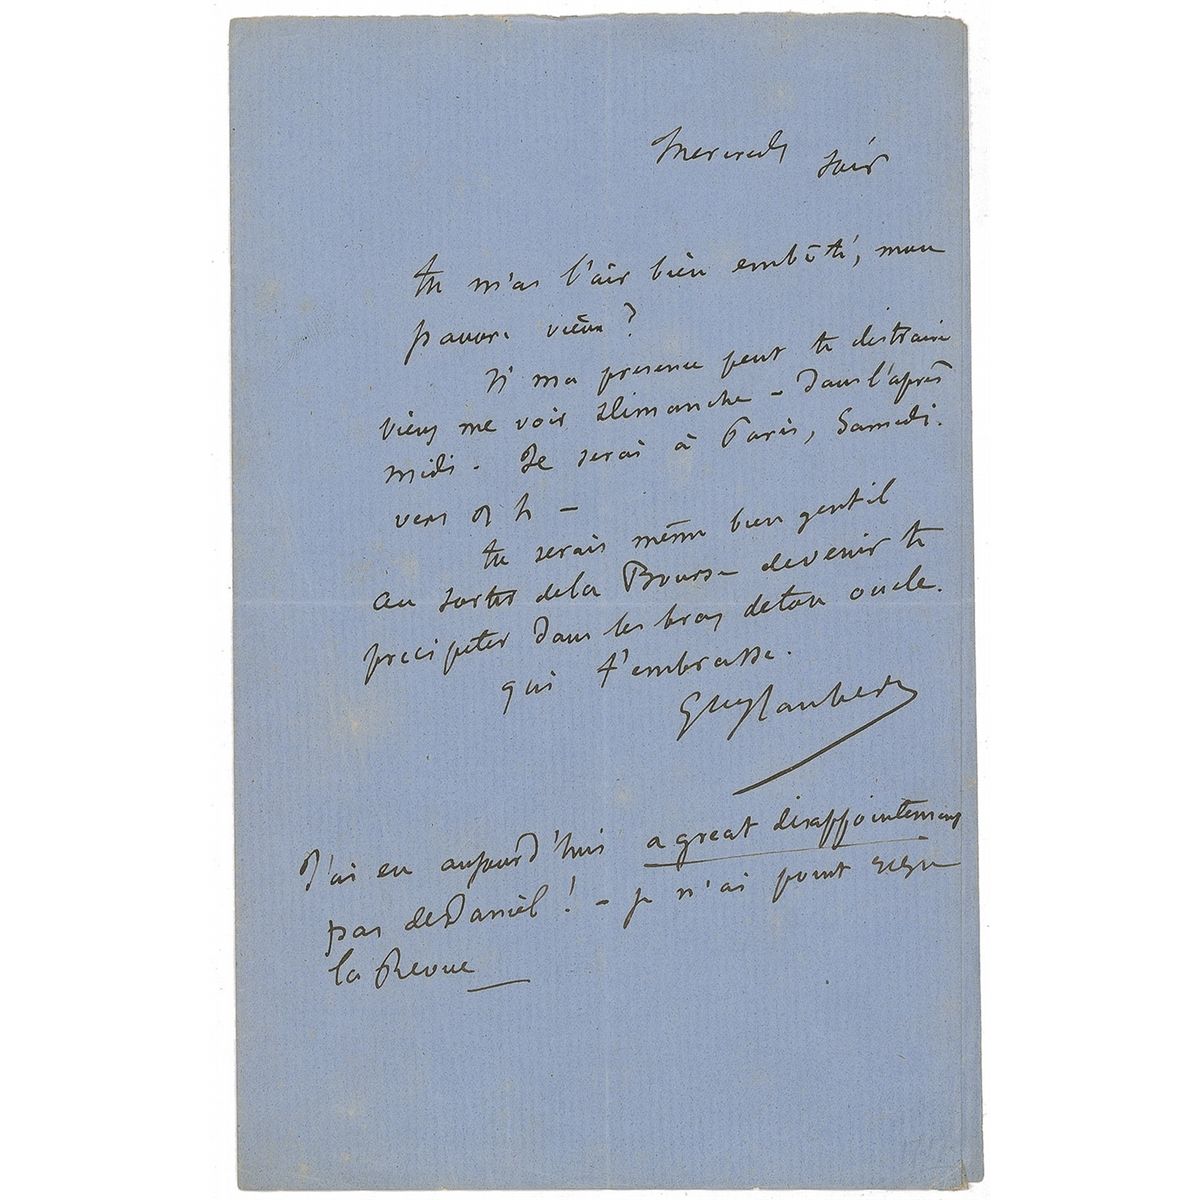 Mercredi soir
Tu m'as l'air bien embêté, mon
pauvre vieux ?
Si ma présence peut te distraire
viens me voir Dimanche – dans l'après
midi. Je serai à Paris, Samedi.
vers 2 h –
Tu serais même bien gentil
au sortir de la Bourse de venir te
précipiter dans les bras de ton oncle.
qui t'embrasse.
Gve Flaubert
J'ai eu aujourd'hui a great disappointement
pas de Daniel ! – je n'ai point reçu
la Revue